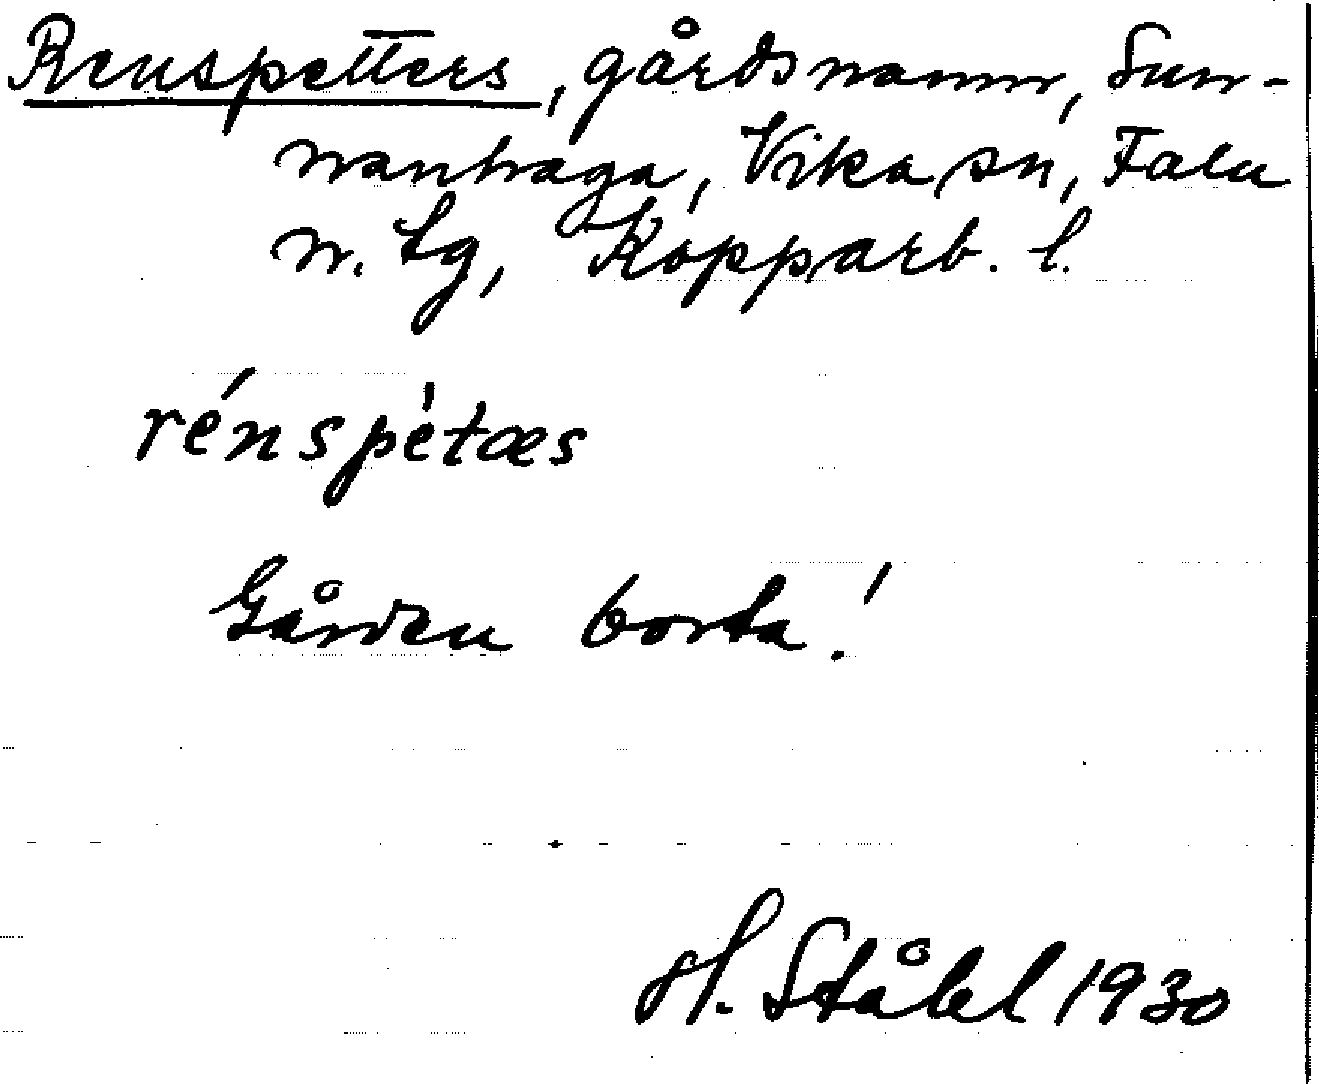 Renspetters, gårdsnamn, Sun-
nanhaga, Vika sn, Falu
n. tg, Kopparb. l.
rénspètæs
Gården borta!
H. Ståhl 1930